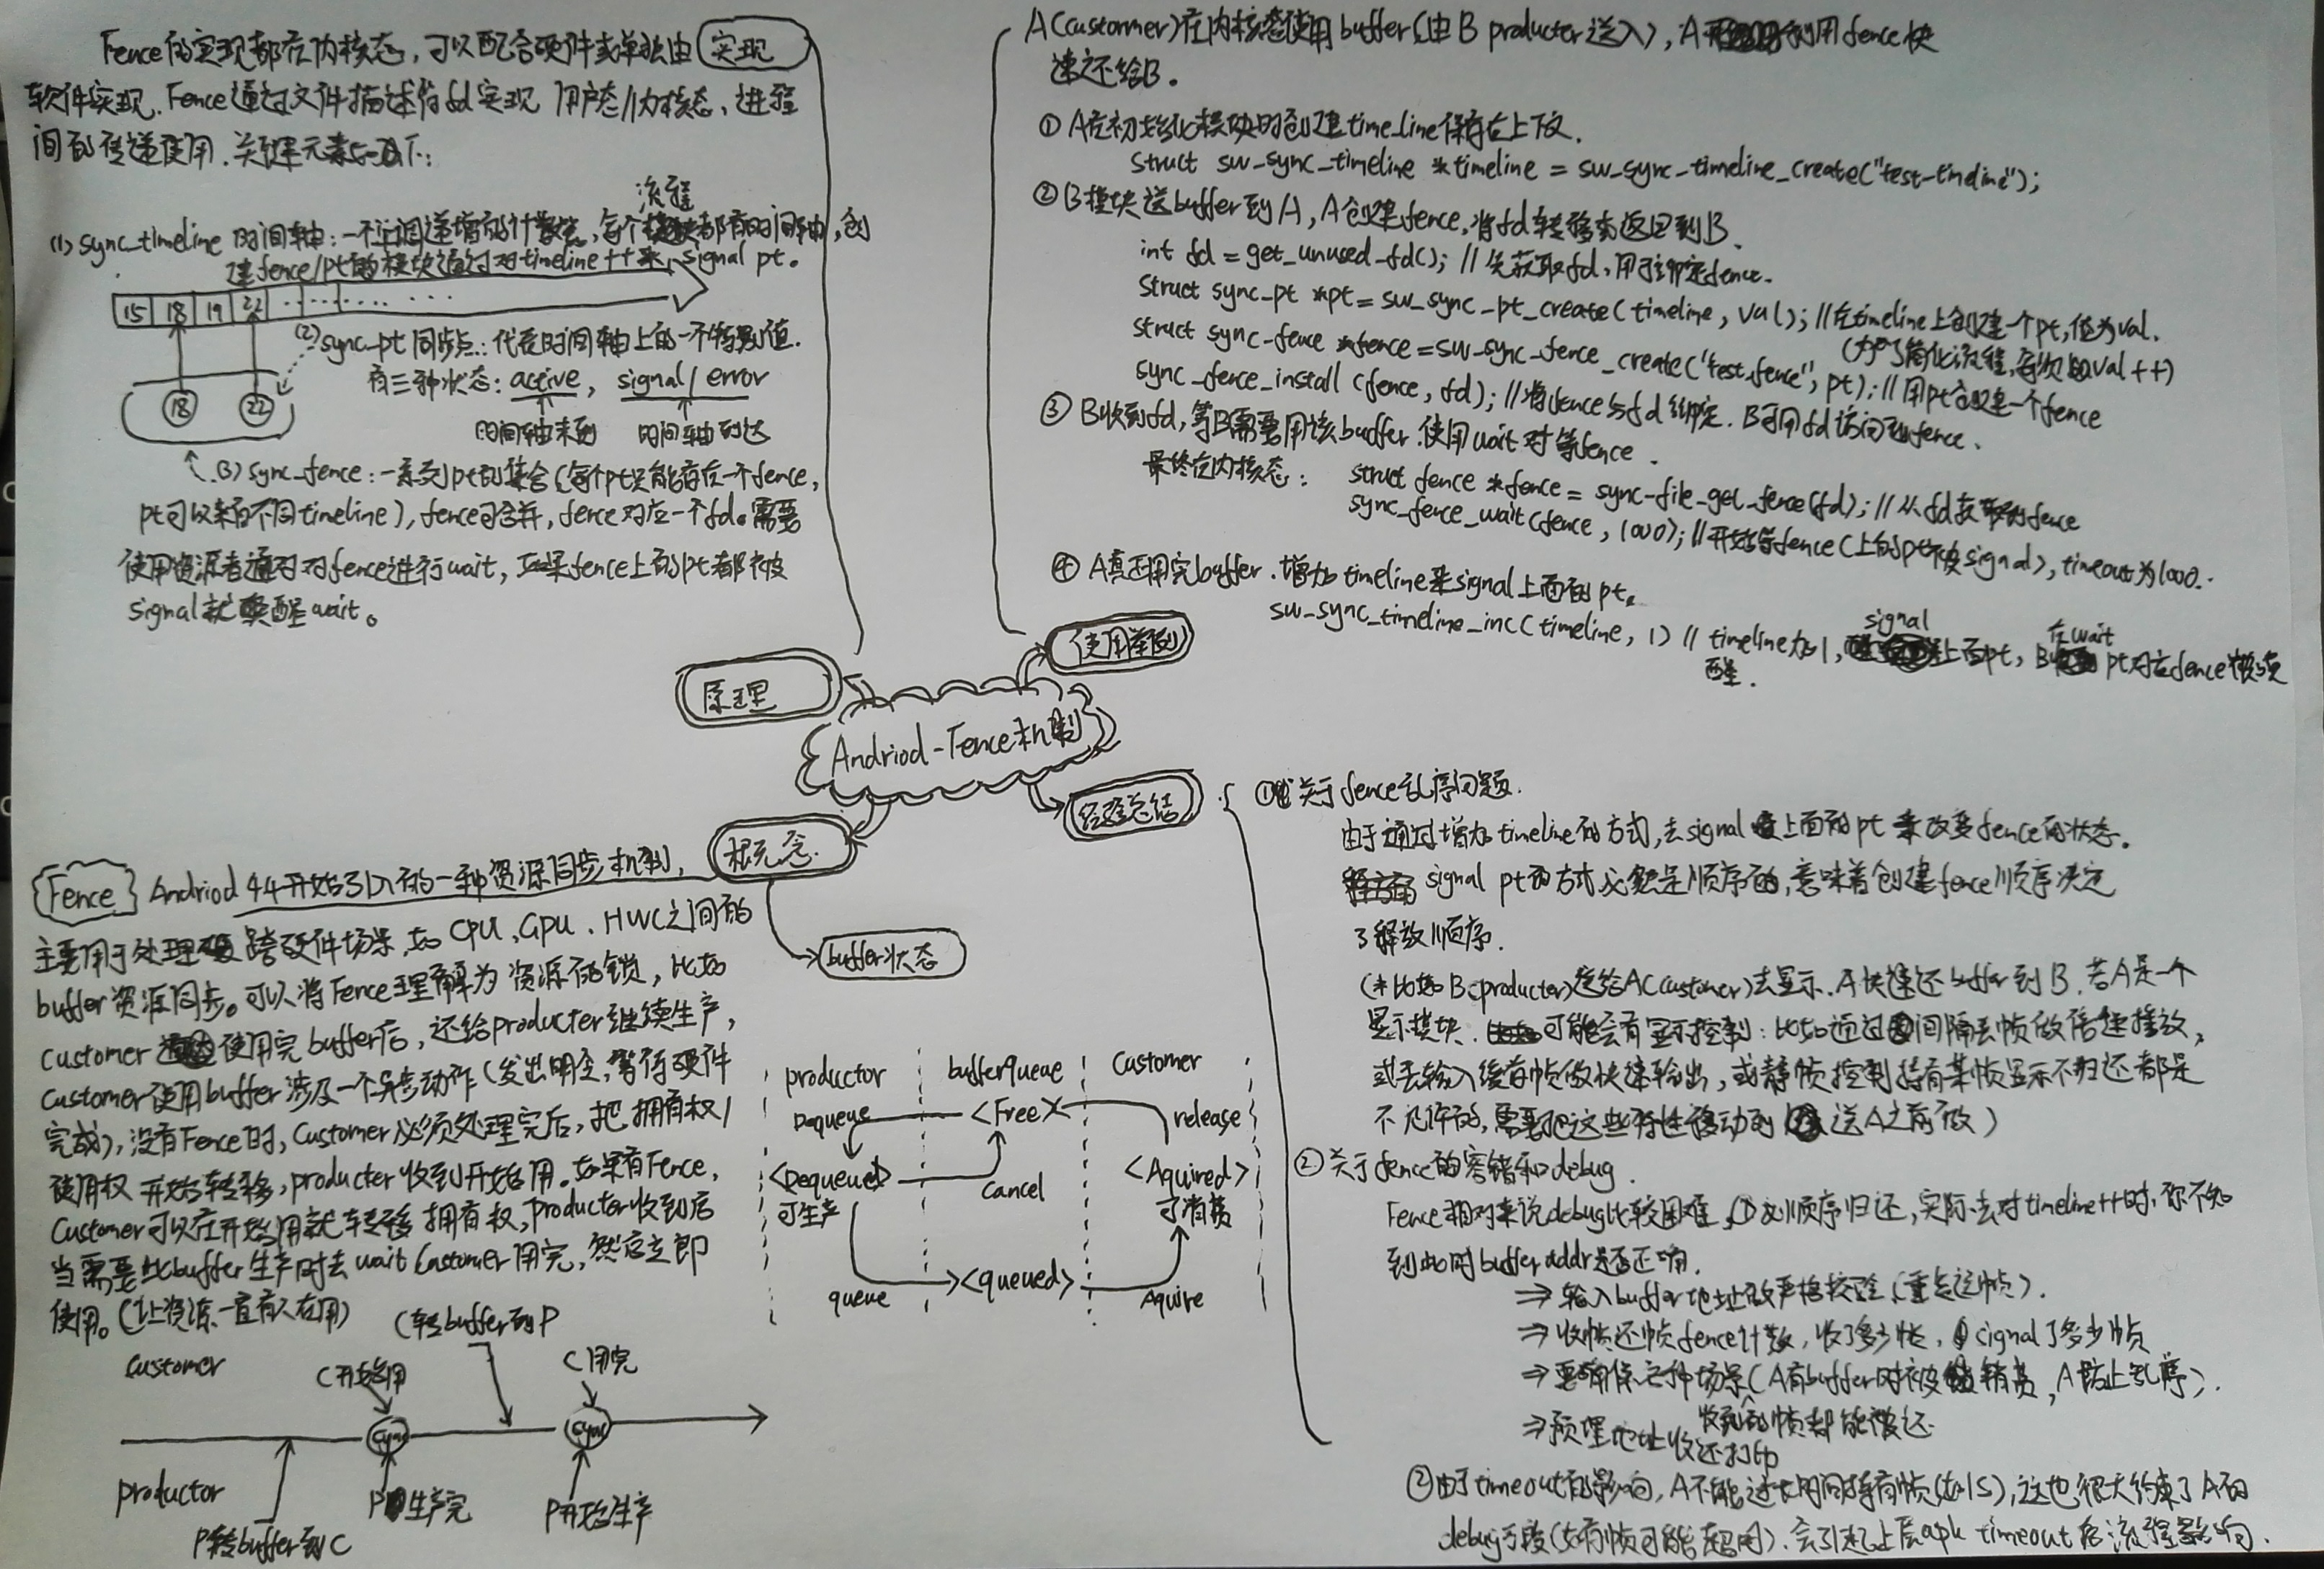 Fence的实现都在内核态，可以配合硬件或单独由
实现
软件实现. Fence通过文件描述符fd实现 用户态/内核态、进程
间的传递使用. 关键元素如下:
流程
(1) sync_timeline 时间轴: 一个单调递增的计数器, 每个都有时间轴, 创
建fence/pt的模块通过对timeline++来 signal pt。
15 18 19 22 ........
(2) sync_pt 同步点: 代表时间轴上的一个特别值.
有三种状态: active, signal/error
时间轴未到 时间轴到达
18 22
(3) sync_fence: 一系列pt的集合(每个pt只能存在一个fence,
pt可以来自不同timeline), fence可合并, fence对应一个fd。需要
使用资源者通过对fence进行wait, 如果fence上的pt都被
signal就唤醒wait。
A(custormer)在内核态使用buffer(由B producter送入), A利用fence快
速还给B。
① A在初始化模块时创建time_line保存在上下文.
struct sw_sync_timeline *timeline = sw_sync_timeline_create("test-timeline");
② B模块送buffer到A, A创建fence, 将fd转移来返回到B.
int fd = get_unused_fd(); // 先获取fd, 用于绑定fence.
struct sync_pt *pt = sw_sync_pt_create(timeline, val); //在timeline上创建一个pt, 值为val.
(为了简化流程, 每次取val++)
struct sync_fence *fence = sw_sync_fence_create("test_fence", pt); // 用pt创建一个fence
sync_fence_install(fence, fd); //将fence与fd绑定. B可用fd访问到fence.
③ B收到fd, 等B需要用该buffer. 使用wait对等fence.
最终在内核态: struct fence *fence = sync_file_get_fence(fd); // 从fd获取到fence
sync_fence_wait(fence, 1000); //开始等fence(上的pt被signal), timeout为1000.
④ A真正用完buffer. 增加timeline来signal上面的pt。
sw_sync_timeline_inc(timeline, 1) // timeline加1, signal上面pt, B在wait pt对应fence被唤
醒.
原理
使用举例
Andriod-Fence机制
概念
经验总结
buffer状态
Fence
Andriod 4.4开始引入的一种资源同步机制,
主要用于处理跨硬件场景, 如CPU、GPU、HWC之间的
buffer资源同步。可以将Fence理解为资源的锁, 比如
customer使用完buffer后, 还给producter继续生产,
customer使用buffer涉及一个异步动作(发出命令, 等待硬件
完成), 没有Fence时, Customer必须处理完后, 把拥有权/
使用权 开始转移, producter收到开始用. 如果有Fence,
Customer可以在开始用就转移拥有权, producter收到后
当需要此buffer生产时去wait Customer用完, 然后立即
使用。(让资源一直有人在用)
productor bufferQueue Customer
Dequeue <Free> release
<Dequeued> cancel <Aquired>
可生产 可消费
queue <queued> Aquire
(转buffer到P
customer C开始用 C用完
sync sync
productor P生产完 P开始生产
P转buffer到C
① 关于fence乱序问题.
由于通过增加timeline的方式, 去signal上面的pt 来改变fence的状态.
signal pt的方式必然是顺序的, 意味着创建fence顺序决定
了释放顺序.
(*比如B(producter)送给A(customer)去显示. A快速还buffer到B. 若A是一个
显示模块. 可能会有显示控制: 比如通过间隔丢帧做倍速播放,
或丢输入缓存帧做快速输出, 或静帧控制持有某帧显示不归还都是
不允许的, 需要把这些特性移动到送A之前做)
② 关于fence的容错和debug.
Fence相对来说debug比较困难, ①必顺序归还, 实际去对timeline++时, 你不知
到此时buffer addr是否正确.
⇒ 输入buffer地址做严格校验(重点这帧).
⇒ 收帧还帧fence计数, 收了多少帧, signal了多少帧
⇒ 要确保各种场景(A有buffer时被销毁, A防止乱序).
收到的帧都能被还
⇒ 预埋地址收还打印
②由于timeout的影响, A不能过长时间持有帧(如1s), 这也很大约束了A的
debug手段(如有帧可能在用). 会引起上层apk timeout后流程影响.